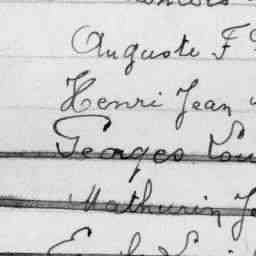 Auguste F
Henri Jean
Georges Lou
Mathurin Je